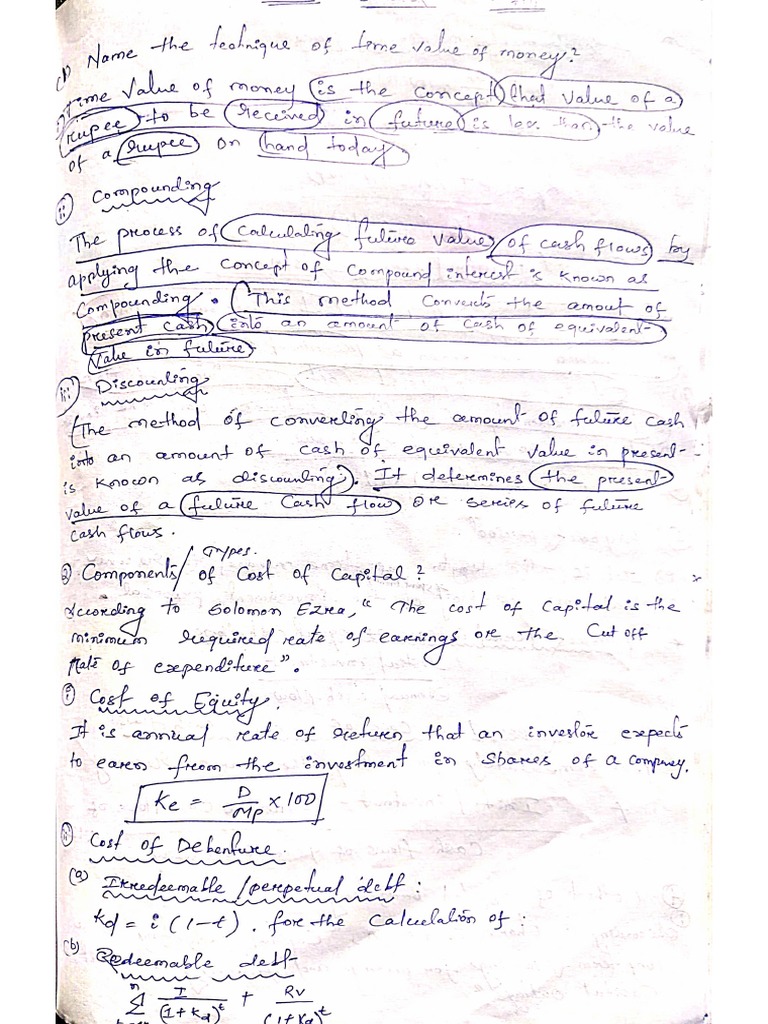 (1) Name the technique of time value of money?
i) Time Value of money is the concept that value of a
rupee to be received in future is less than the value
of a rupee on hand today
ii) Compounding
The process of calculating future value of cash flows by
applying the concept of compound interest is known as
Compounding. This method converts the amout of
present cash into an amount of cash of equivalent
value in future
iii) Discounting
(The method of converting the amount of future cash
into an amount of cash of equivalent value in present
is known as discounting). It determines the present
value of a future cash flow or series of future
cash flows.
Types.
2) Components/ of Cost of Capital?
According to Solomon Ezra, "The cost of Capital is the
minimum required rate of earnings or the Cut off
Rate of expenditure".
i) Cost of Equity.
It is annual rate of return that an investor expects
to earn from the investment in shares of a company.
Ke = D/MP × 100
ii) Cost of Debenture.
(a) Irredeemable/perpetual debt:
Kd = i (1-t). for the Calculation of:
(b) Redeemable debt
n Σ I/(1+Kd)^t + RV/(1+Kd)^t